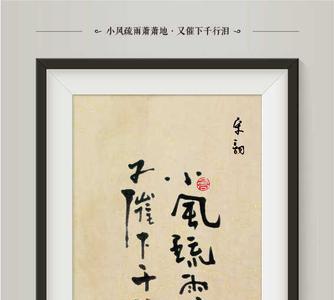 小风疏雨萧萧地·又催下千行泪
宋韵
小風疏雨
又催下千